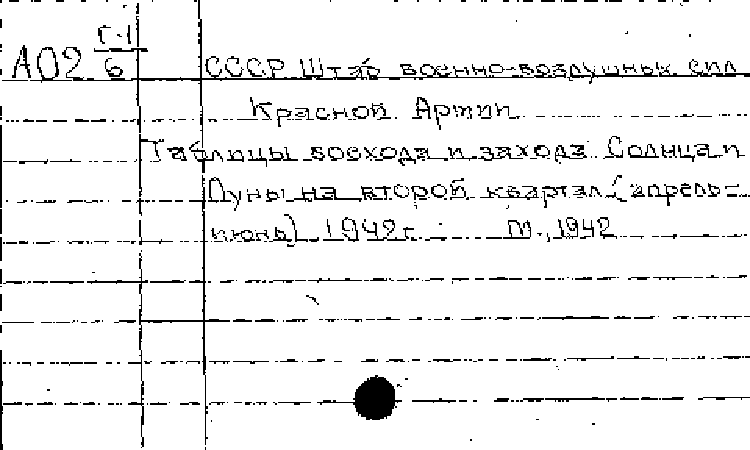 Г.1
А02 6
СССР. Штаб военно-воздушных сил
Красной Армии
Таблицы восхода и захода Солнца и
Луны на второй квартал (апрель-
июнь) 1942 г. М., 1942